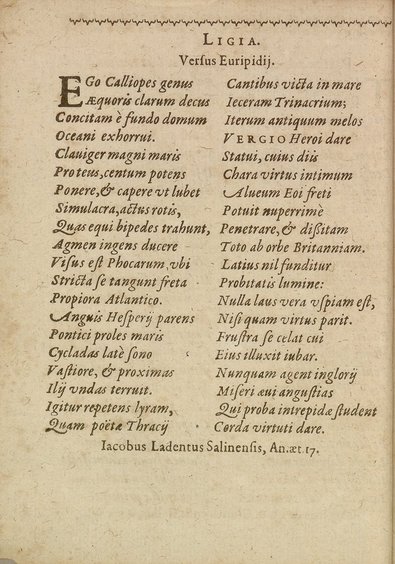 LIGIA.
Versus Euripidij.
EGo Calliopes genus
Æquoris clarum decus
Concitam è fundo domum
Oceani exhorrui.
Clauiger magni maris
Proteus, centum potens
Ponere, & capere vt lubet
Simulacra, actus rotis,
Quas equi bipedes trahunt,
Agmen ingens ducere
Visus est Phocarum, vbi
Stricta se tangunt freta
Propiora Atlantico.
Anguis Hesperij parens
Pontici proles maris
Cycladas latè sono
Vastiore, & proximas
Ilij vndas terruit.
Igitur repetens lyram,
Quam poëtæ Thracij
Cantibus victa in mare
Ieceram Trinacrium;
Iterum antiquum melos
VERGIO Heroi dare
Statui, cuius diis
Chara virtus intimum
Alueum Eoi freti
Potuit nuperrimè
Penetrare, & dißitam
Toto ab orbe Britanniam.
Latius nil funditur
Probitatis lumine:
Nulla laus vera vspiam est,
Nisi quam virtus parit.
Frustra se celat cui
Eius illuxit iubar.
Nunquam agent inglorij
Miseri æui angustias
Qui proba intrepidæ student
Corda virtuti dare.
Iacobus Ladentus Salinensis, An.æt.17.